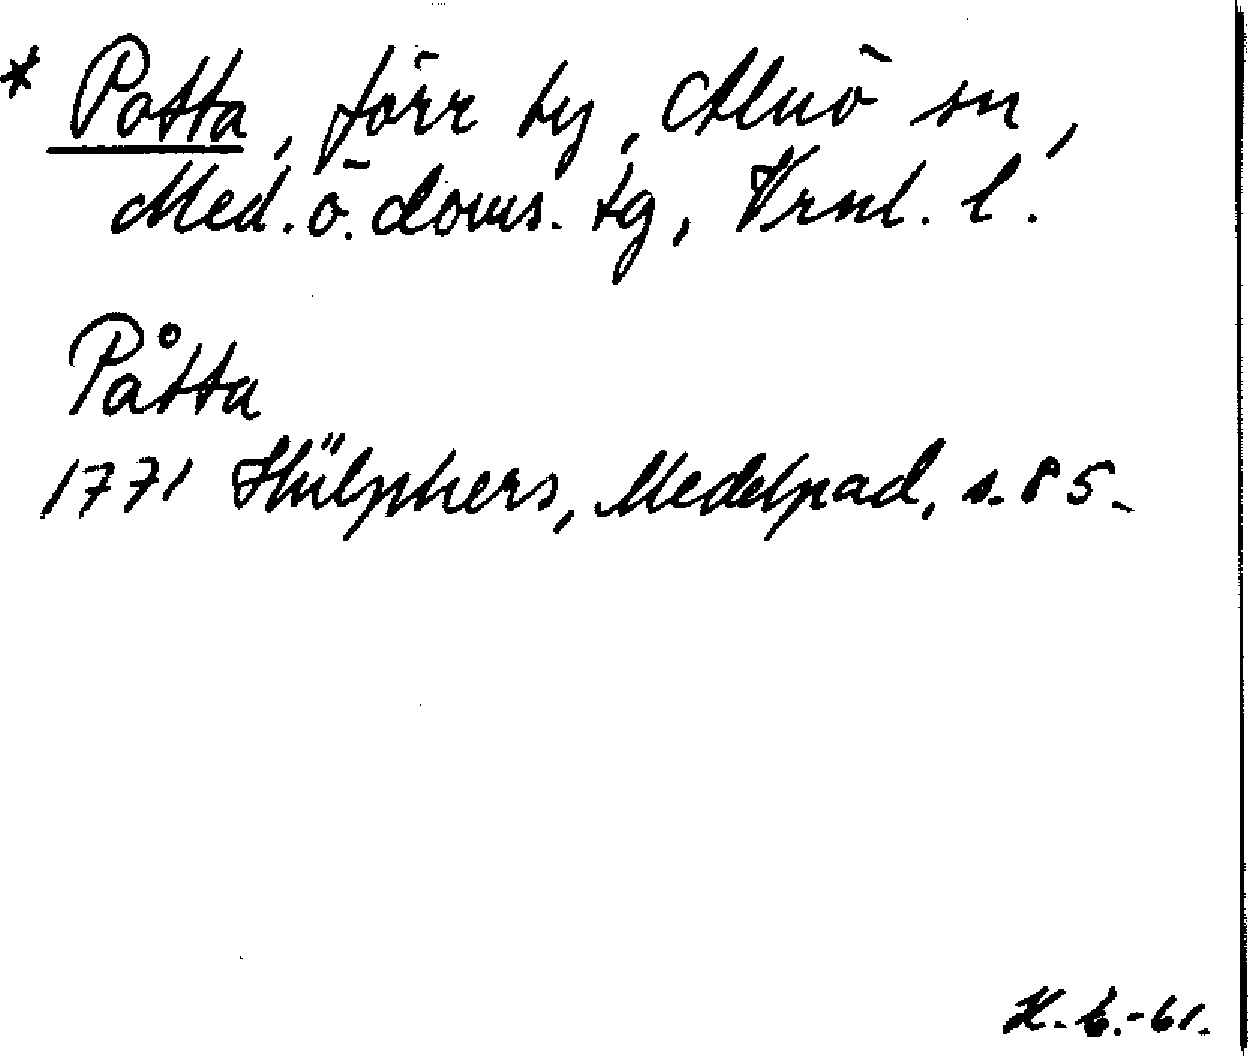 * Potta, förr by, Alnö sn,
Med. ö. doms. tg, Vrnl. l.
Påtta
1771 Hülphers, Medelpad, s. 85.
-61.